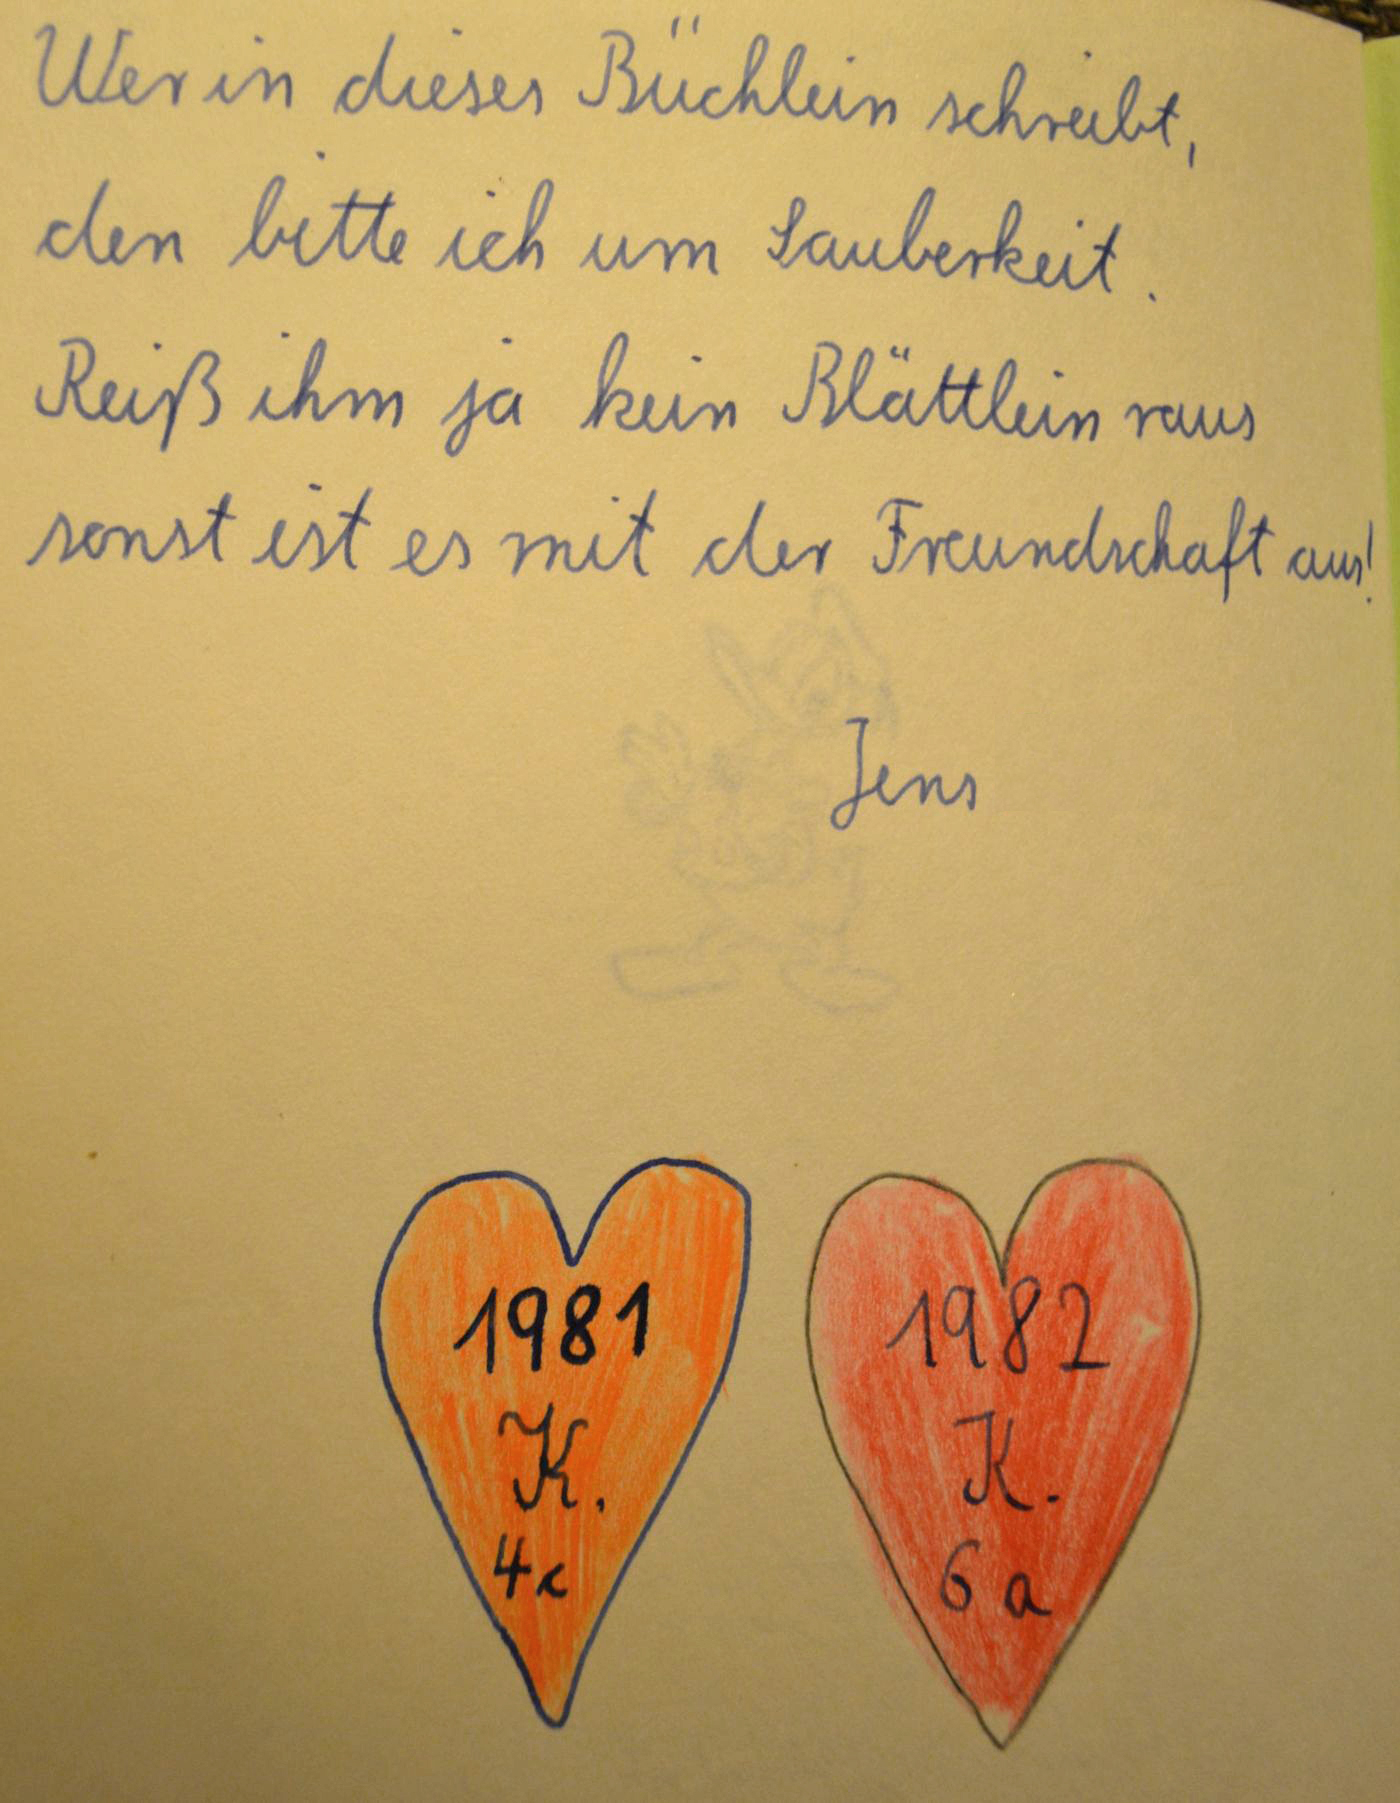 Wer in dieses Büchlein schreibt,
den bitte ich um Sauberkeit.
Reiß ihm ja kein Blättlein raus
sonst ist es mit der Freundschaft aus!
Jens
1981
K.
4c
1982
K.
6a